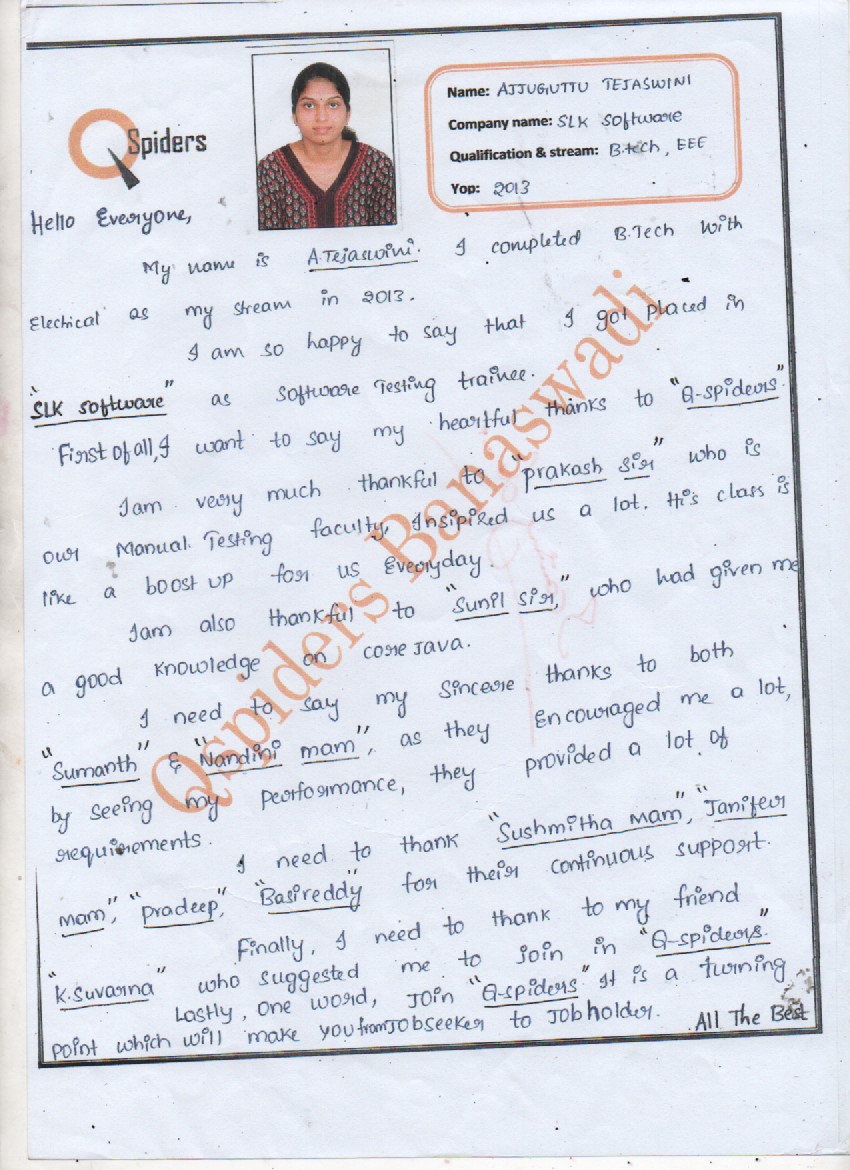 Q Spiders
Name: AJJUGUTTU TEJASWINI
Company name: SLK Software
Qualification & stream: B.tech, EEE
Yop: 2013
Hello Everyone,
My name is A.Tejaswini. I completed B.Tech with
Elechical as my stream in 2013.
I am so happy to say that I got placed in
"SLK software" as software Testing trainee.
First of all, I want to say my heartful thanks to "Q-spiders"
I am very much thankful to "prakash sir" who is
our Manual Testing faculty, Insipired us a lot. His class is
like a boost up for us Everyday.
I am also thankful to "Sunil Sir," who had given me
a good knowledge on core Java.
I need to say my sincere thanks to both
"Sumanth" & "Nandini mam", as they Encouraged me a lot,
by seeing my performance, they provided a lot of
requirements.
I need to thank "Sushmitha mam", "Janifer
mam", "pradeep", "Basireddy" for their continuous support.
Finally, I need to thank to my friend
"K.Suvarna" who suggested me to join in "Q-spiders."
Lastly, one word, Join "Q-spiders" It is a turning
point which will make you from Jobseeker to Jobholder.
All The Best
Qspiders Banaswadi